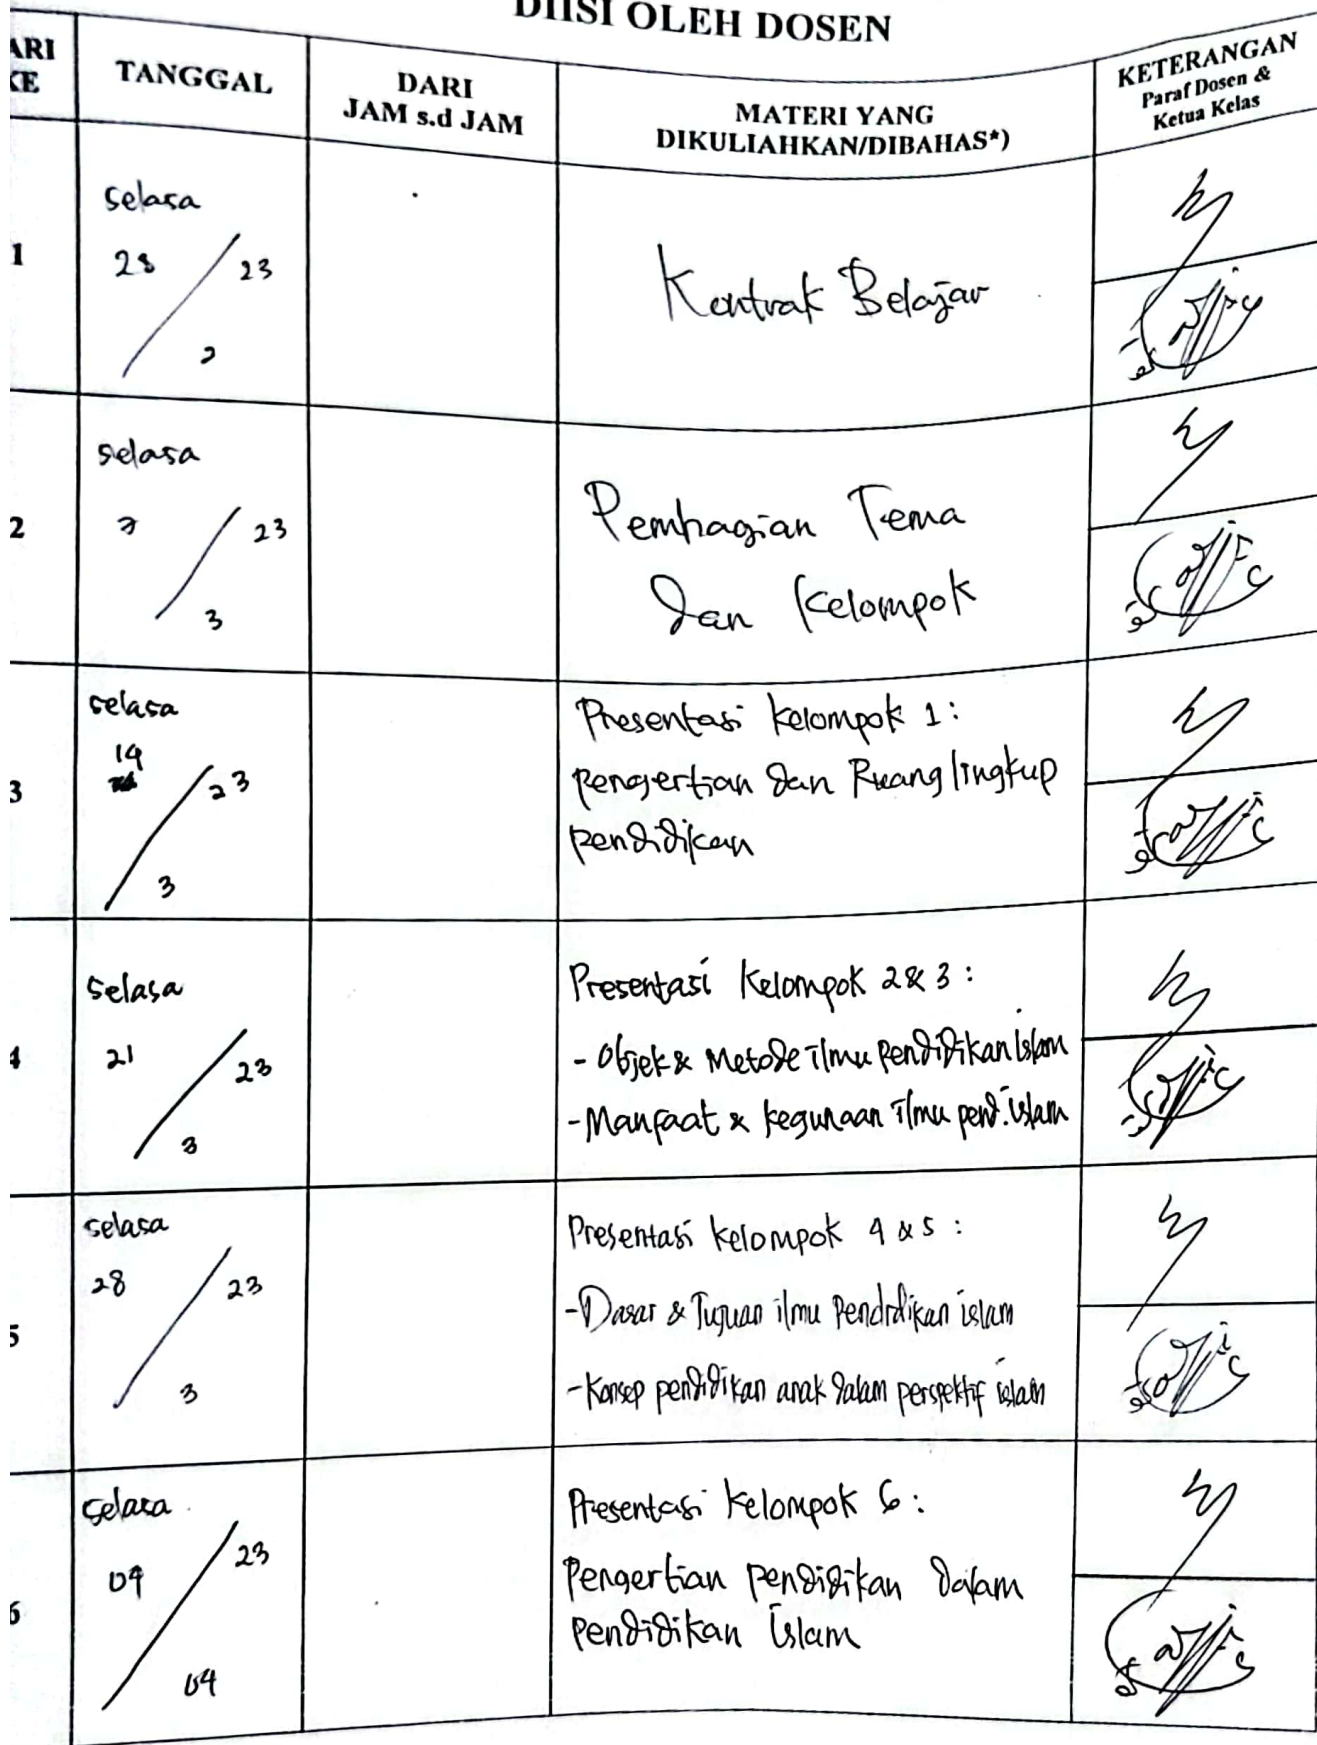 DIISI OLEH DOSEN
ARI
KE
TANGGAL
DARI
JAM s.d JAM
MATERI YANG
DIKULIAHKAN/DIBAHAS*)
KETERANGAN
Paraf Dosen &
Ketua Kelas
1
Selasa
28 / 23
2
Kontrak Belajar
2
Selasa
7 / 23
3
Pembagian Tema
dan Kelompok
3
Selasa
14
/ 23
3
Presentasi Kelompok 1:
pengertian dan Ruang lingkup
pendidikan
4
Selasa
21 / 23
3
Presentasi Kelompok 2&3:
- Objek & Metode ilmu Pendidikan islam
- Manfaat & kegunaan ilmu pend. islam
5
Selasa
28 / 23
3
Presentasi kelompok 4 & 5:
- Dasar & Tujuan ilmu Pendidikan islam
- Konsep pendidikan anak dalam perspektif islam
6
Selasa
04 / 23
04
Presentasi Kelompok 6:
Pengertian pendidikan dalam
Pendidikan Islam